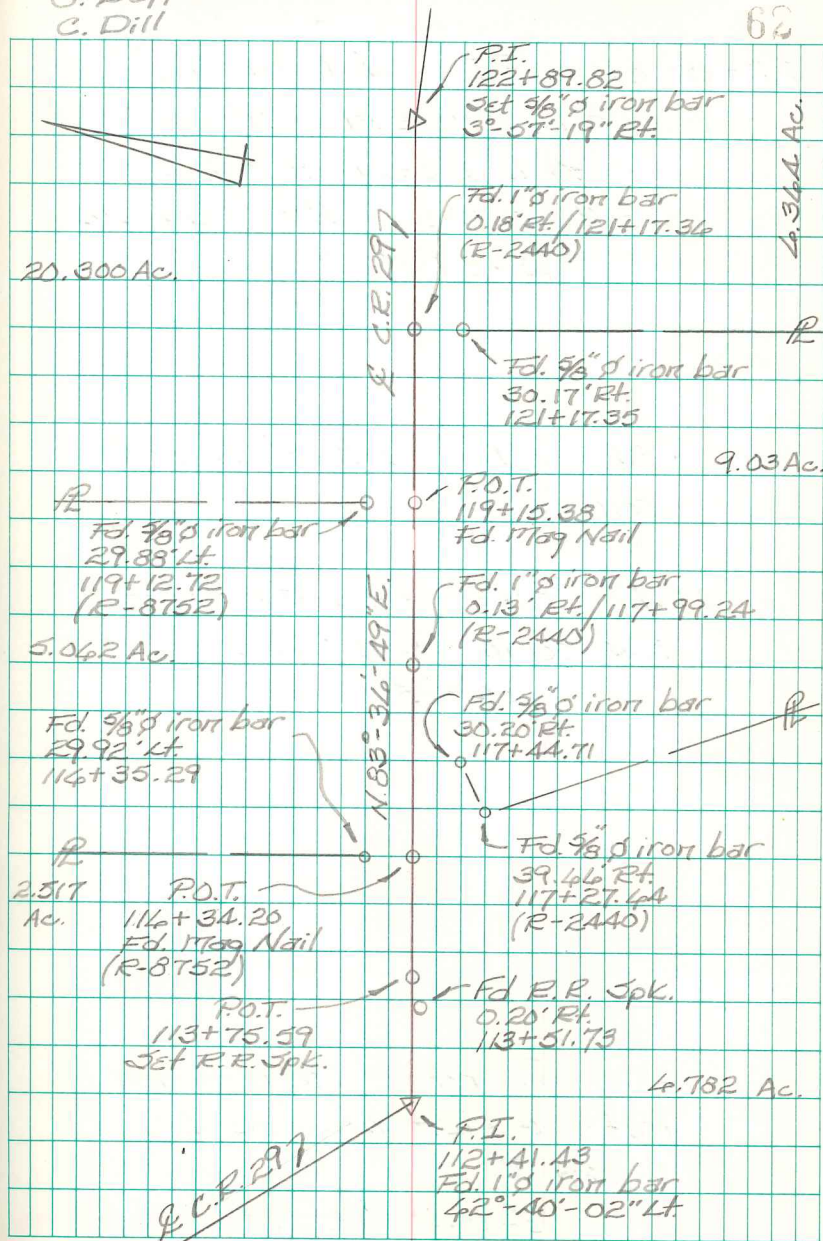 C. Dill
62
P.I.
122+89.82
Set 5/8"ø iron bar
3°-57'-19" Rt.
6.364 Ac.
Fd. 1"ø iron bar
0.18' Rt./121+17.36
(R-2440)
20.300 Ac.
℄ C.R. 297
℄
Fd. 5/8"ø iron bar
30.17' Rt.
121+17.35
9.03 Ac.
℄
P.O.T.
119+15.38
Fd. Mag Nail
Fd. 5/8"ø iron bar
29.88' Lt.
119+12.72
(R-8752)
Fd. 1"ø iron bar
0.13' Rt./117+99.24
(R-2440)
5.062 Ac.
N.83°-36'-49"E.
Fd. 5/8"ø iron bar
30.20' Rt.
117+44.71
℄
Fd. 5/8"ø iron bar
29.92' Lt.
116+35.29
Fd. 5/8"ø iron bar
39.66' Rt.
117+27.64
(R-2440)
℄
2.517
Ac.
P.O.T.
116+34.20
Fd. Mag Nail
(R-8752)
P.O.T.
113+75.59
Set R.R. Spk.
Fd R.R. Spk.
0.20' Rt.
113+51.73
6.782 Ac.
P.I.
112+41.43
Fd. 1"ø iron bar
42°-40'-02" Lt.
℄ C.R. 297